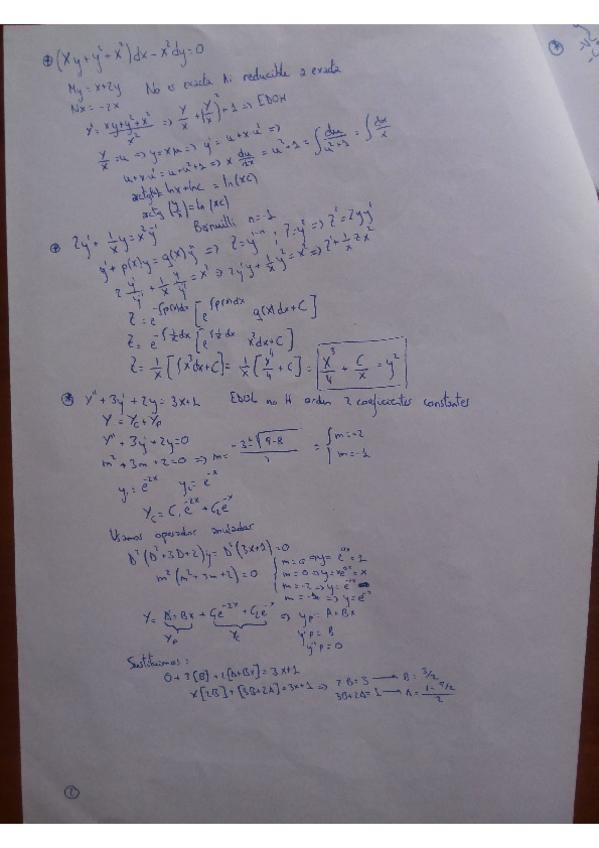 (xy+y²+x²)dx-x²dy=0
My=x+2y No es exacta ni reducible a exacta
Nx=-2x
y'=(xy+y²+x²)/x² => y/x+(y/x)²+1 => EDOH
y/x=u => y=xu => y'=u+x·u' =>
u+x·u'=u+u²+1 => x du/dx=u²+1 = ∫du/(u²+1)=∫dx/x
lnx+lnc=ln(xc)
arctg(y/x)=ln(xc)
Bernuilli n=-1
2y'+1/x y=x²y⁻¹
y'+p(x)y=q(x)yⁿ => z=y¹⁻ⁿ ; z=y² => z'=2yy'
2 y'/y⁻¹+1/x y/y⁻¹=x² => 2y'y+1/x y²=x² => z'+1/x z x²
z=e^(-∫p(x)dx)[e^(∫p(x)dx) q(x)dx+C]
z=e^(-∫1/x dx)[e^(∫1/x dx) x²dx+C]
z=1/x[∫x³dx+C]=1/x[x⁴/4+C]= x³/4+C/x=y²
y''+3y'+2y=3x+1 EDOL no H orden 2 coeficientes constantes
y=yc+yp
y''+3y'+2y=0
m²+3m+2=0 => m=(-3±√(9-8))/2 = {m=-2
m=-1
y₁=e⁻²ˣ y₂=e⁻ˣ
yc=C₁e⁻²ˣ+C₂e⁻ˣ
Usamos operador anulador
D²(D²+3D+2)y=D²(3x+1)=0
m²(m²+3m+2)=0 {m=0 => y=e⁰ˣ=1
m=0 => y=xe⁰ˣ=x
m=-2 => y=e⁻²ˣ
m=-1 => y=e⁻ˣ
y=A+Bx+C₁e⁻²ˣ+C₂e⁻ˣ => yp=A+Bx
yp yc y'p=B
y''p=0
Sustituimos:
0+3[B]+2[A+Bx]=3x+1
x[2B]+[3B+2A]=3x+1 => 2B=3 → B=3/2
3B+2A=1 → A=(1-9/2)/2
2